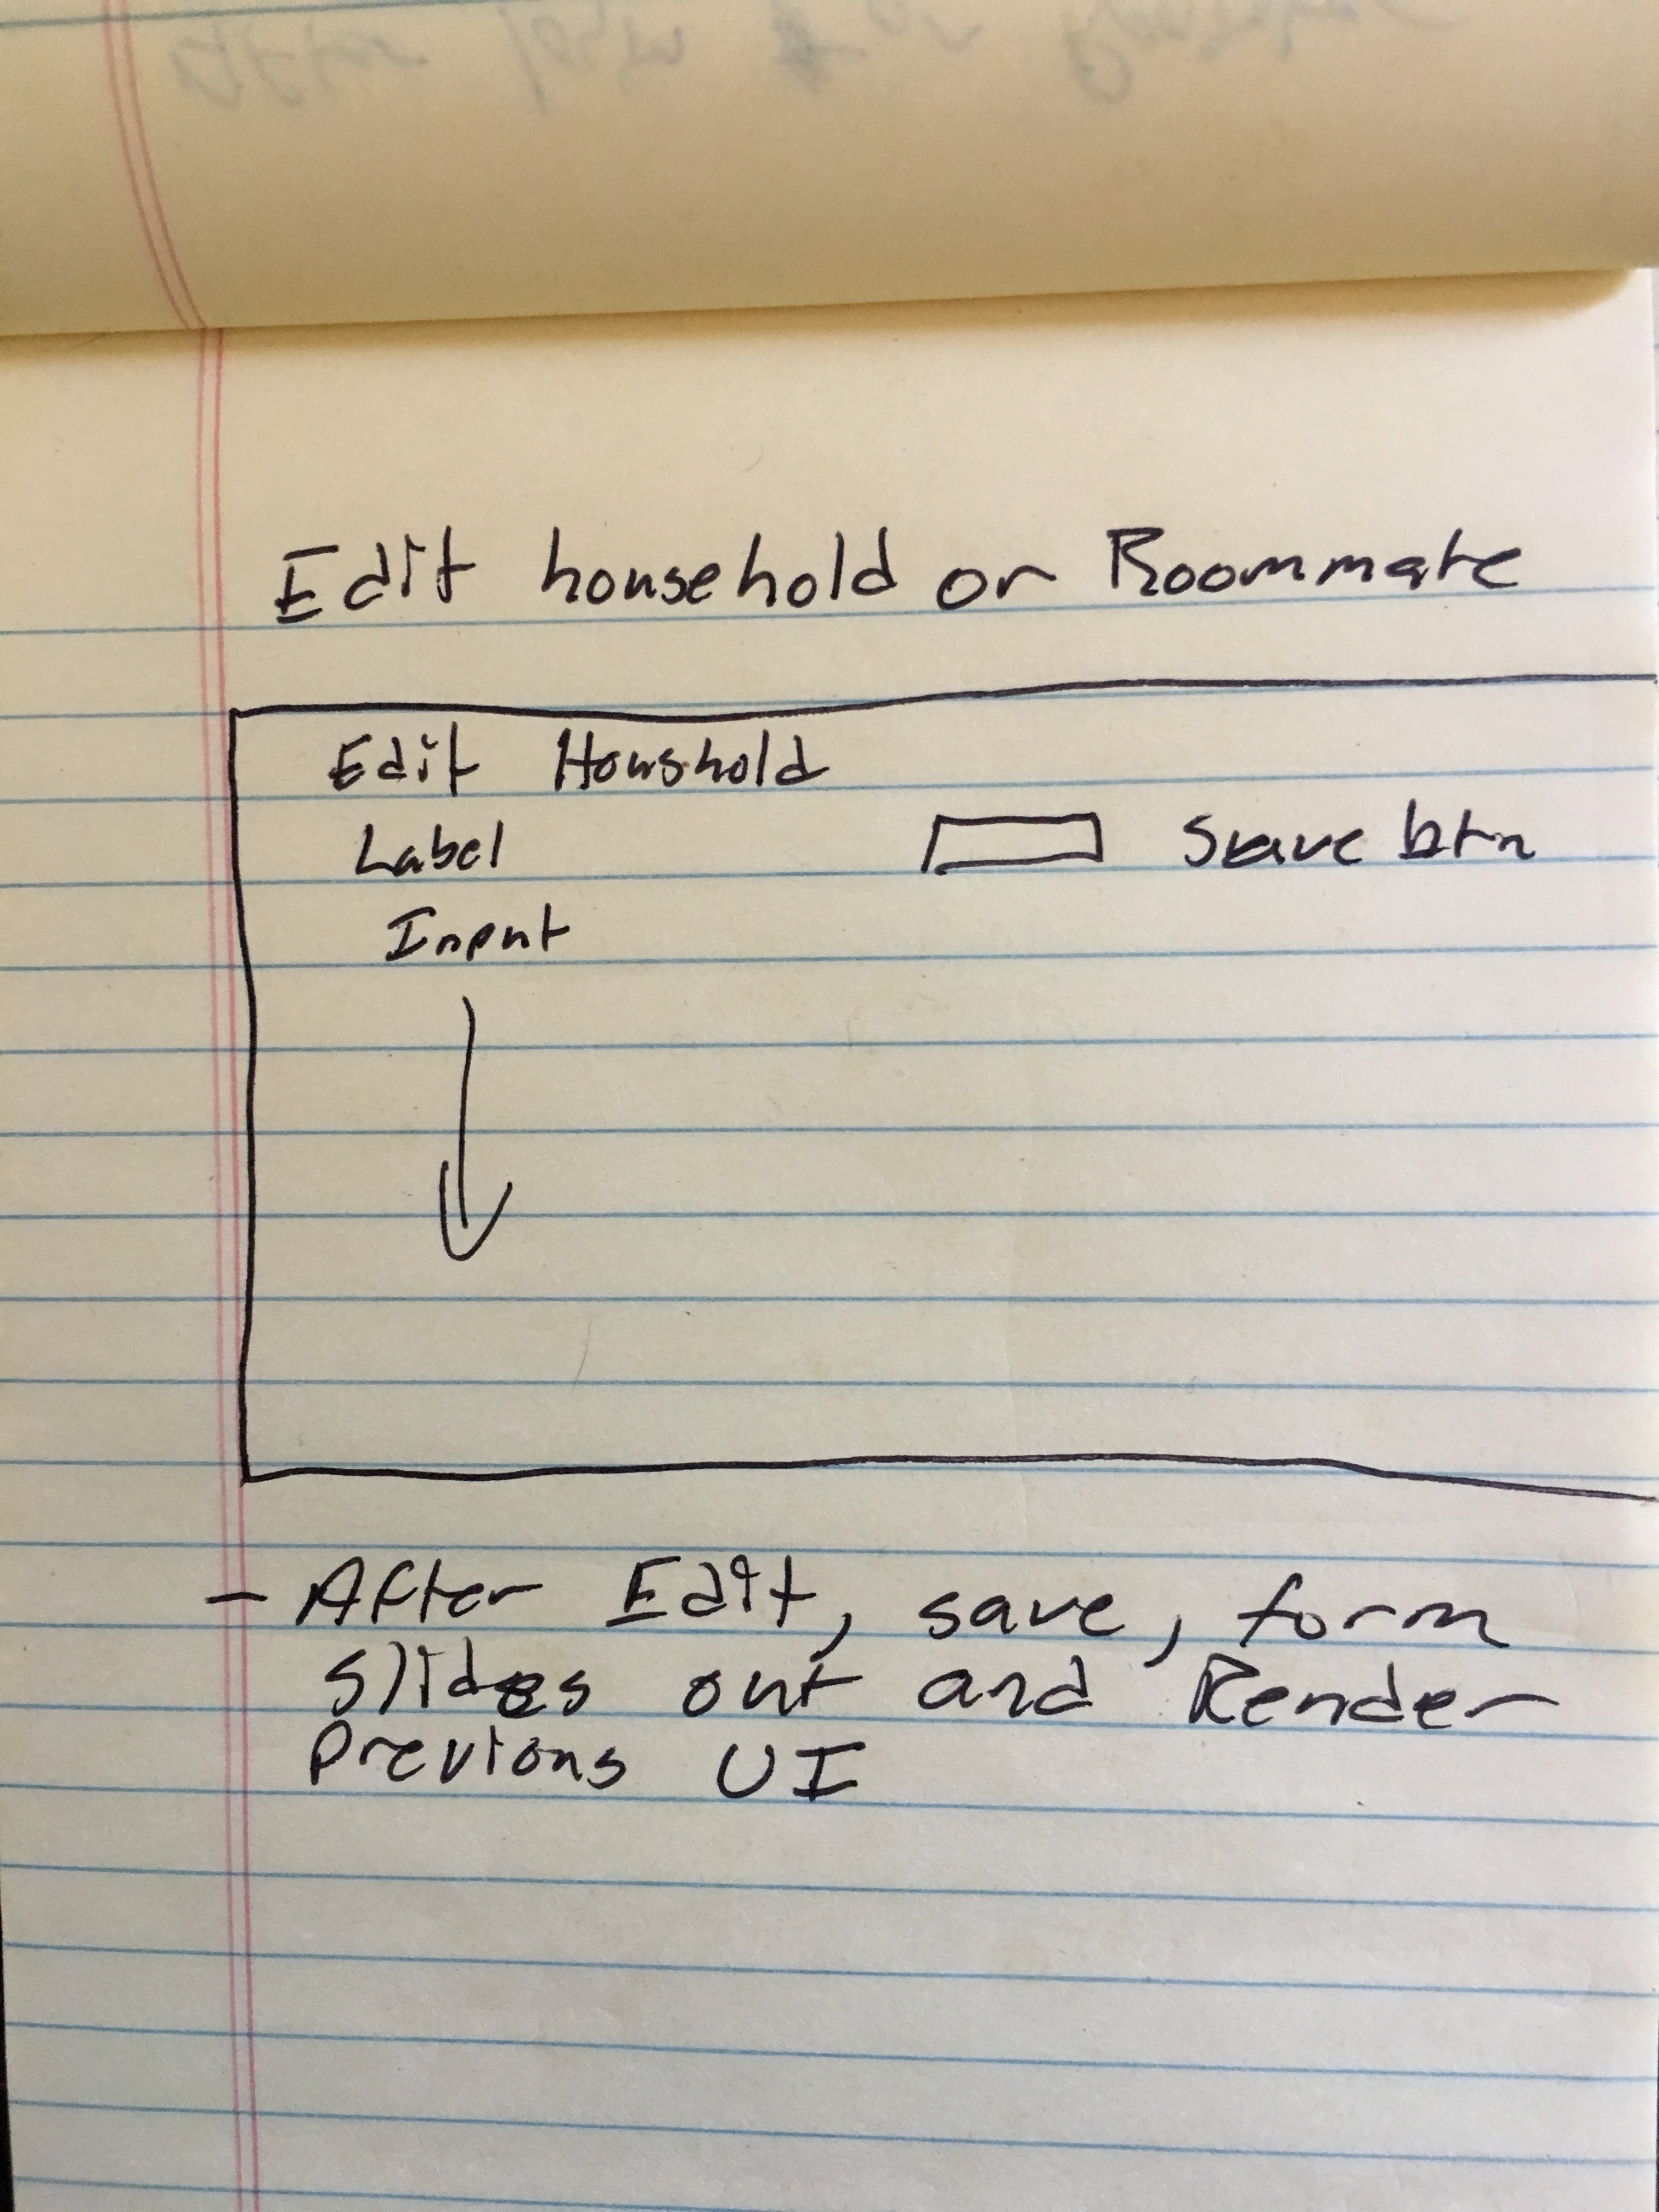 Edit household or Roommate
Edit Houshold
Label
Save btn
Input
- After Edit, save, form
slides out and Render
Previous UI